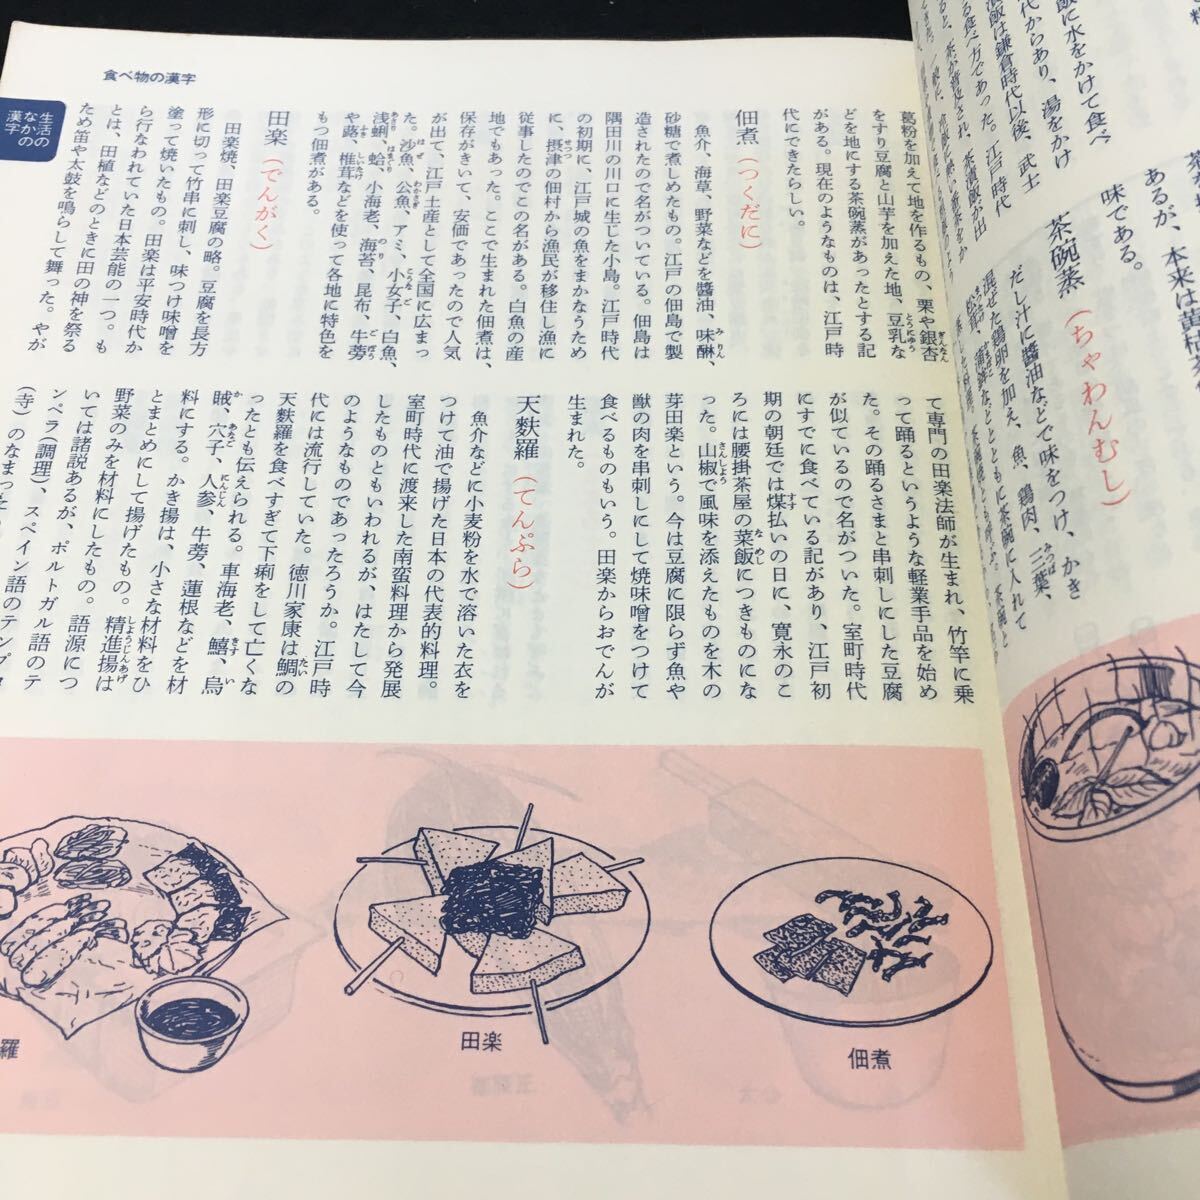 食べ物の漢字
生活の
なかの
漢字
葛粉を加えて地を作るもの、栗や銀杏
をすり豆腐と山芋を加えた地、豆乳な
どを地にする茶碗蒸があったとする記
がある。現在のようなものは、江戸時
代にできたらしい。
佃煮（つくだに）
魚介、海草、野菜などを醬油、味醂、
砂糖で煮しめたもの。江戸の佃島で製
造されたので名がついている。佃島は
隅田川の川口に生じた小島。江戸時代
の初期に、江戸城の魚をまかなうため
に、摂津の佃村から漁民が移住し漁に
従事したのでこの名がある。白魚の産
地でもあった。ここで生まれた佃煮は、
保存がきいて、安価であったので人気
が出て、江戸土産として全国に広まっ
た。沙魚、公魚、アミ、小女子、白魚、
浅蜊、蛤、小海老、海苔、昆布、牛蒡
や蕗、椎茸などを使って各地に特色を
もつ佃煮がある。
田楽（でんがく）
田楽焼、田楽豆腐の略。豆腐を長方
形に切って竹串に刺し、味つけ味噌を
塗って焼いたもの。田楽は平安時代か
ら行なわれていた日本芸能の一つ。も
とは、田植などのときに田の神を祭る
ため笛や太鼓を鳴らして舞った。やが
て専門の田楽法師が生まれ、竹竿に乗
って踊るというような軽業手品を始め
た。その踊るさまと串刺しにした豆腐
が似ているので名がついた。室町時代
にすでに食べている記があり、江戸初
期の朝廷では煤払いの日に、寛永のこ
ろには腰掛茶屋の菜飯につきものにな
った。山椒で風味を添えたものを木の
芽田楽という。今は豆腐に限らず魚や
獣の肉を串刺しにして焼味噌をつけて
食べるものもいう。田楽からおでんが
生まれた。
天麩羅（てんぷら）
魚介などに小麦粉を水で溶いた衣を
つけて油で揚げた日本の代表的料理。
室町時代に渡来した南蛮料理から発展
したものともいわれるが、はたして今
のようなものであったろうか。江戸時
代には流行していた。徳川家康は鯛の
天麩羅を食べすぎて下痢をして亡くな
ったとも伝えられる。車海老、鱚、烏
賊、穴子、人参、牛蒡、蓮根などを材
料にする。かき揚は、小さな材料をひ
とまとめにして揚げたもの。精進揚は
野菜のみを材料にしたもの。語源につ
いては諸説あるが、ポルトガル語のテ
ンペラ（調理）、スペイン語のテンプ
（寺）のなまった
羅
田楽
佃煮
飯に水をかけて食べ
代からあり、湯をかけ
漬飯は鎌倉時代以後、武士
る食べ方であった。江戸時代
ると、茶が普及され、茶漬飯が出
あるが、本来は黄
味である。
茶碗蒸（ちゃわんむし）
だし汁に醬油などで味をつけ、かき
混ぜた鶏卵を加え、魚、鶏肉、三葉、
松茸、蒲鉾などとともに茶碗に入れて